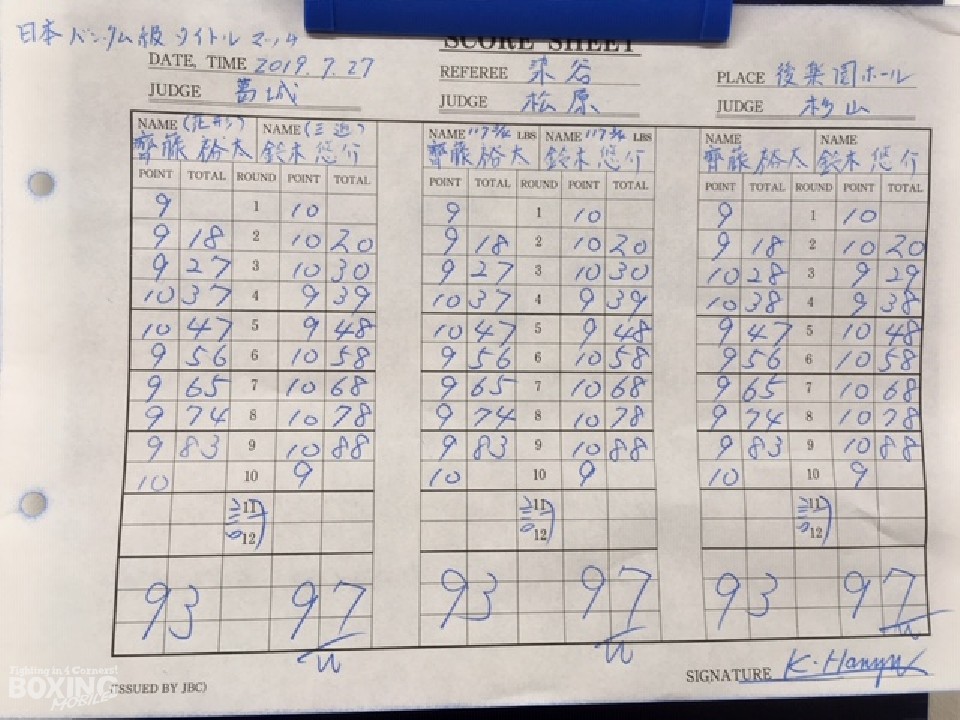 日本バンタム級タイトルマッチ
SCORE SHEET
DATE, TIME 2019.7.27 REFEREE 染谷 PLACE 後楽園ホール
JUDGE 葛城 JUDGE 松原 JUDGE 杉山
NAME (花形) NAME (三迫) NAME 117 3/4 LBS NAME 117 3/4 LBS NAME NAME
齊藤裕太 鈴木悠介 齊藤裕太 鈴木悠介 齊藤裕太 鈴木悠介
POINT TOTAL ROUND POINT TOTAL POINT TOTAL ROUND POINT TOTAL POINT TOTAL ROUND POINT TOTAL
9 1 10 9 1 10 9 1 10
9 18 2 10 20 9 18 2 10 20 9 18 2 10 20
9 27 3 10 30 9 27 3 10 30 10 28 3 9 29
10 37 4 9 39 10 37 4 9 39 10 38 4 9 38
10 47 5 9 48 10 47 5 9 48 9 47 5 10 48
9 56 6 10 58 9 56 6 10 58 9 56 6 10 58
9 65 7 10 68 9 65 7 10 68 9 65 7 10 68
9 74 8 10 78 9 74 8 10 78 9 74 8 10 78
9 83 9 10 88 9 83 9 10 88 9 83 9 10 88
10 10 9 10 10 9 10 10 9
11 11 11
12 12 12
93 97 93 97 93 97
SIGNATURE K. Hanyu
(ISSUED BY JBC)
Fighting in 4 Corners!
BOXING
MOBILE